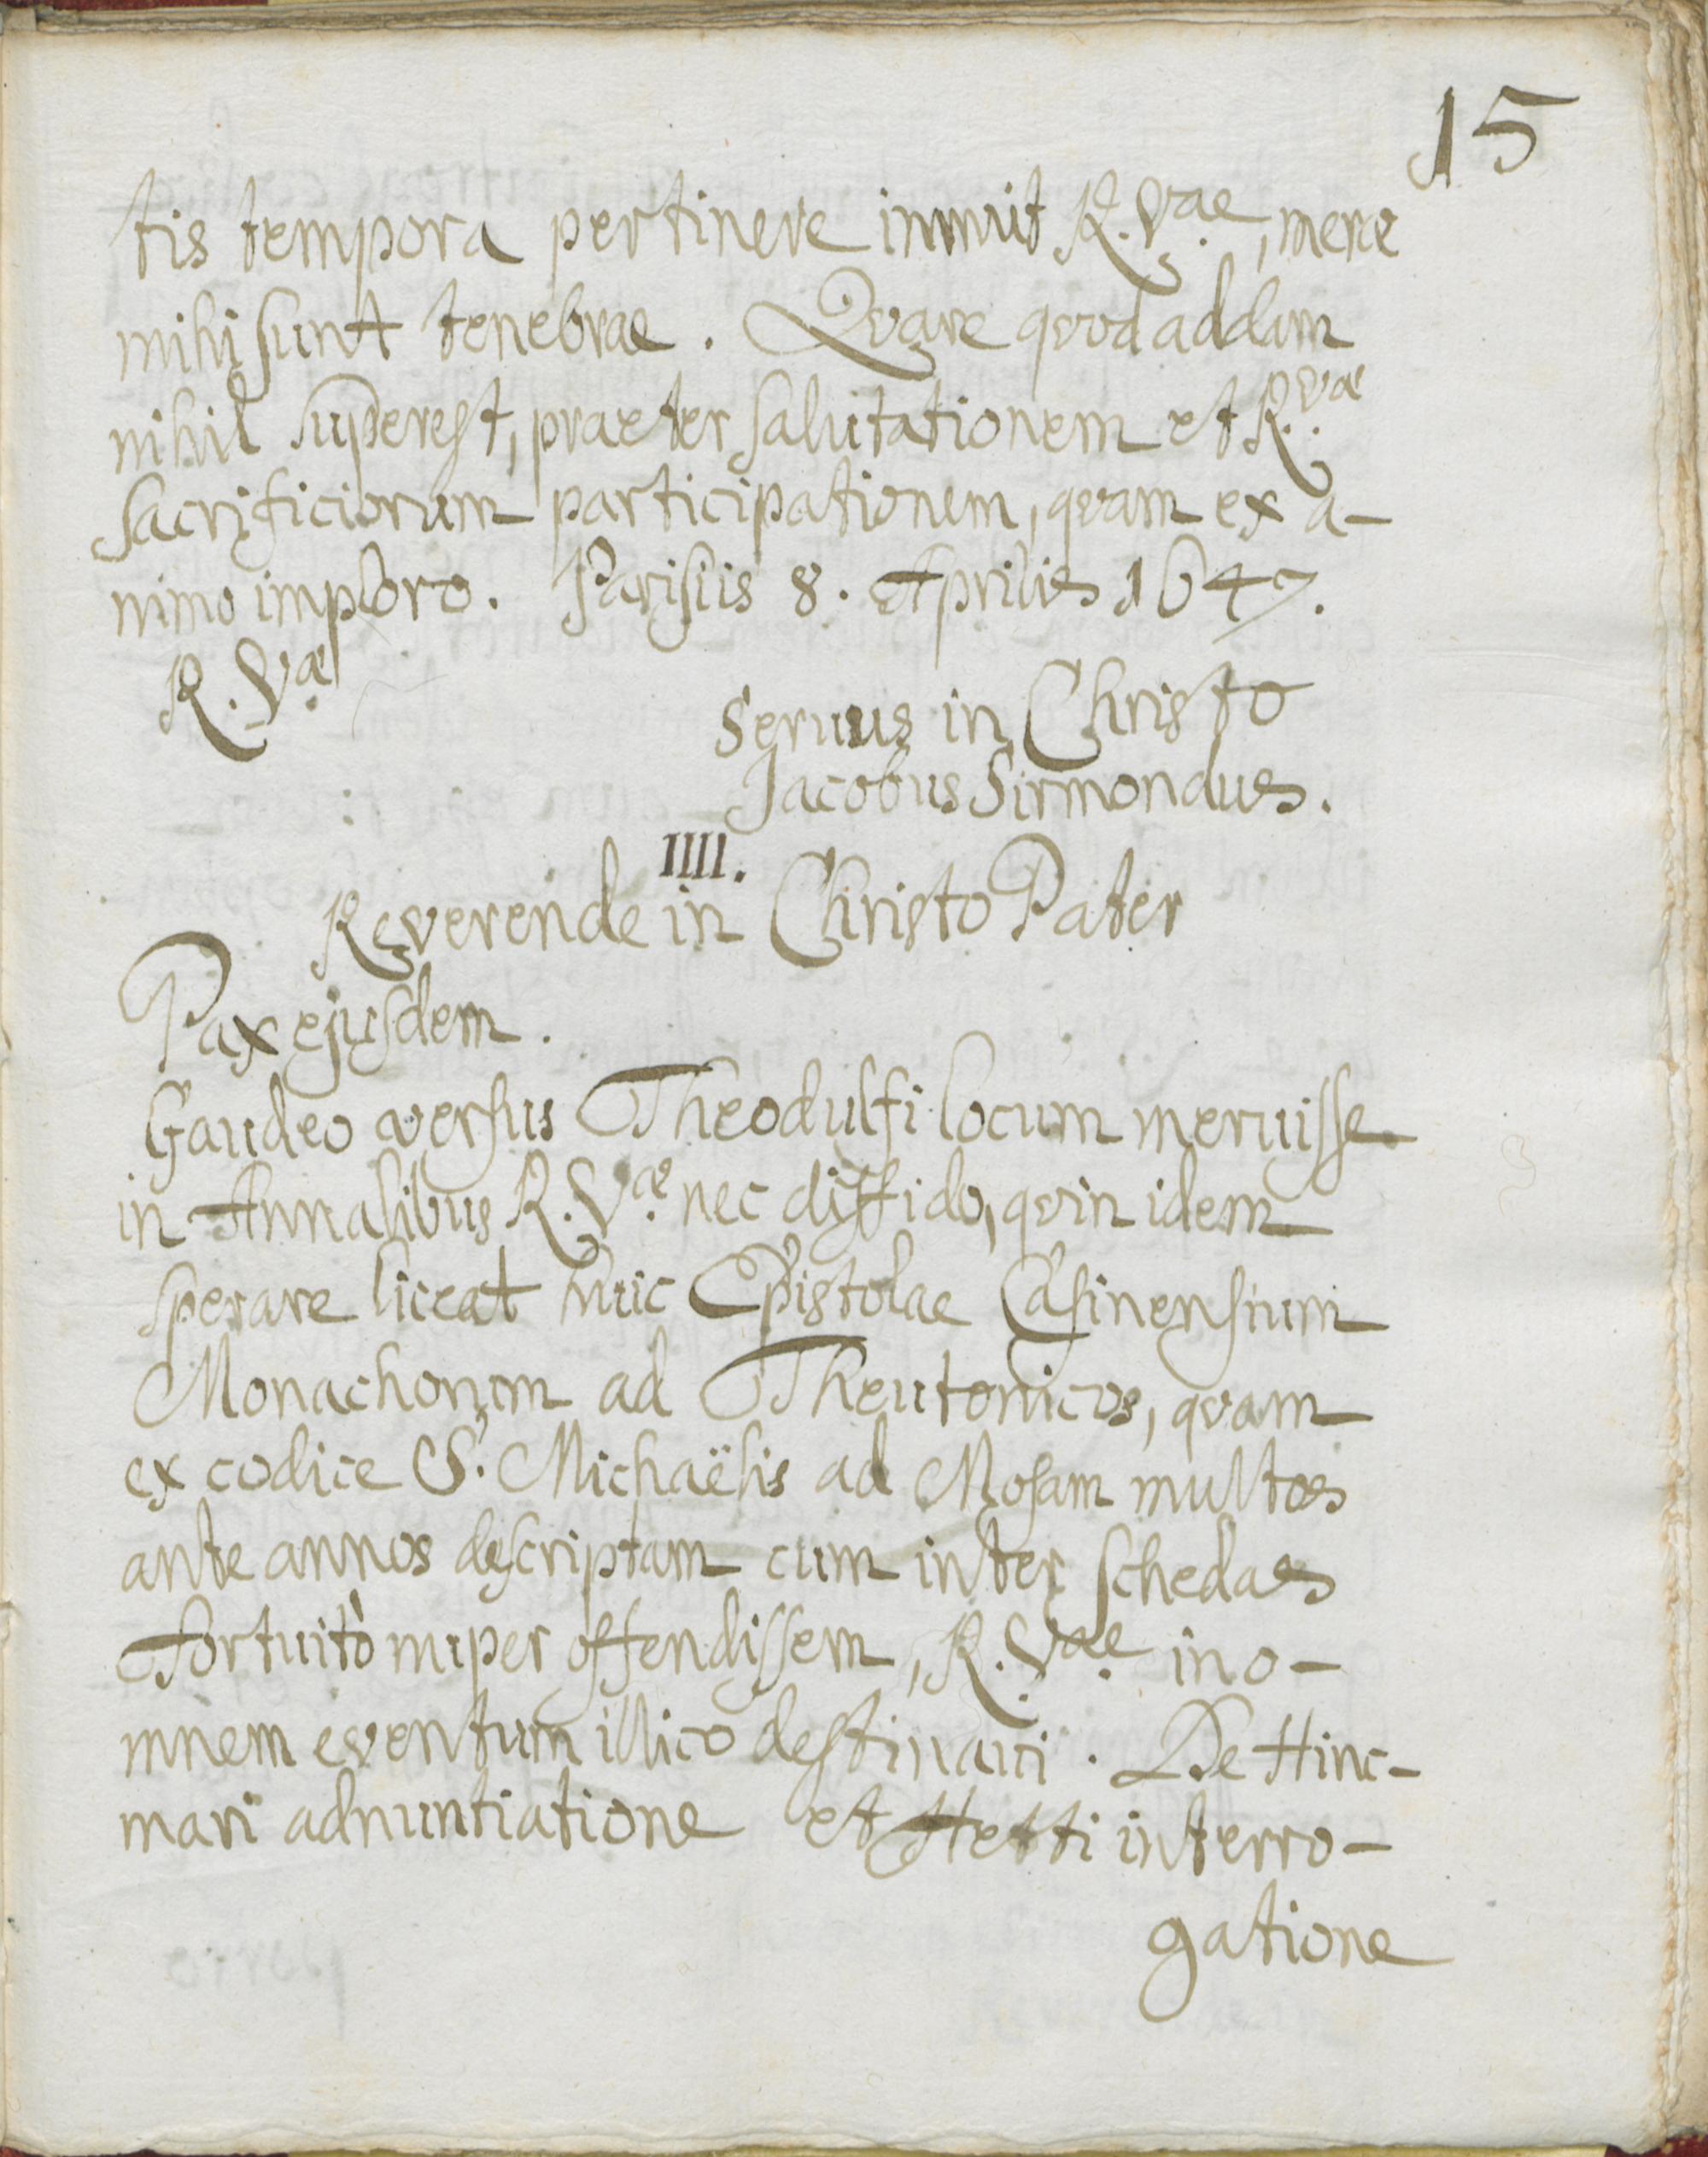 15
tis tempora pertinere innuit R. V.ae, merae
mihi sunt tenebrae. Qvare qvod addam
nihil superest, praeter salutationem et R. V.ae
sacrificiorum participationem, qvam ex a-
nimo imploro. Parisiis 8. Aprilis 1647.
R. V.ae
Seruus in Christo
Jacobus Sirmondus.
IIII.
Reverende in Christo Pater
Pax ejusdem.
Gaudeo versus Theodulfi locum meruisse
in Annalibus R. V.ae nec diffido, qvin idem
sperare liceat huic Epistolae Casinensium
Monachorum ad Theutonicos, qvam
ex codice S. Michaëlis ad Mosam multos
ante annos descriptam cum inter schedas
fortuitò nuper offendissem, R. V.ae in o-
mnem eventum illico destinaui. De Hinc-
mari adnuntiatione et Hetti interro-
gatione